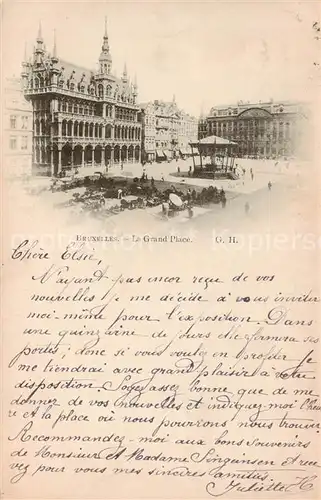 BRUXELLES. — La Grand Place. G. H.
Chère Elsie,
N'ayant pas encor reçu de vos
nouvelles je me décide à vous inviter
moi-même pour l'exposition. Dans
une quinzaine de jours elle fermera ses
portes; donc si vous voulez en profiter je
me tiendrai avec grand plaisir à votre
disposition. Soyez assez bonne que de me
donner de vos nouvelles et indiquez-moi l'heu
re et la place où nous pourrons nous trouver
Recommandez-moi aux bons souvenirs
de Monsieur et Madame et rece
vez pour vous mes sincères amitiés
Juliette H